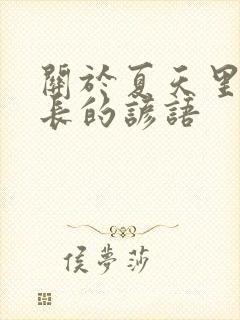 關於夏天里
長的諺語
侯夢莎